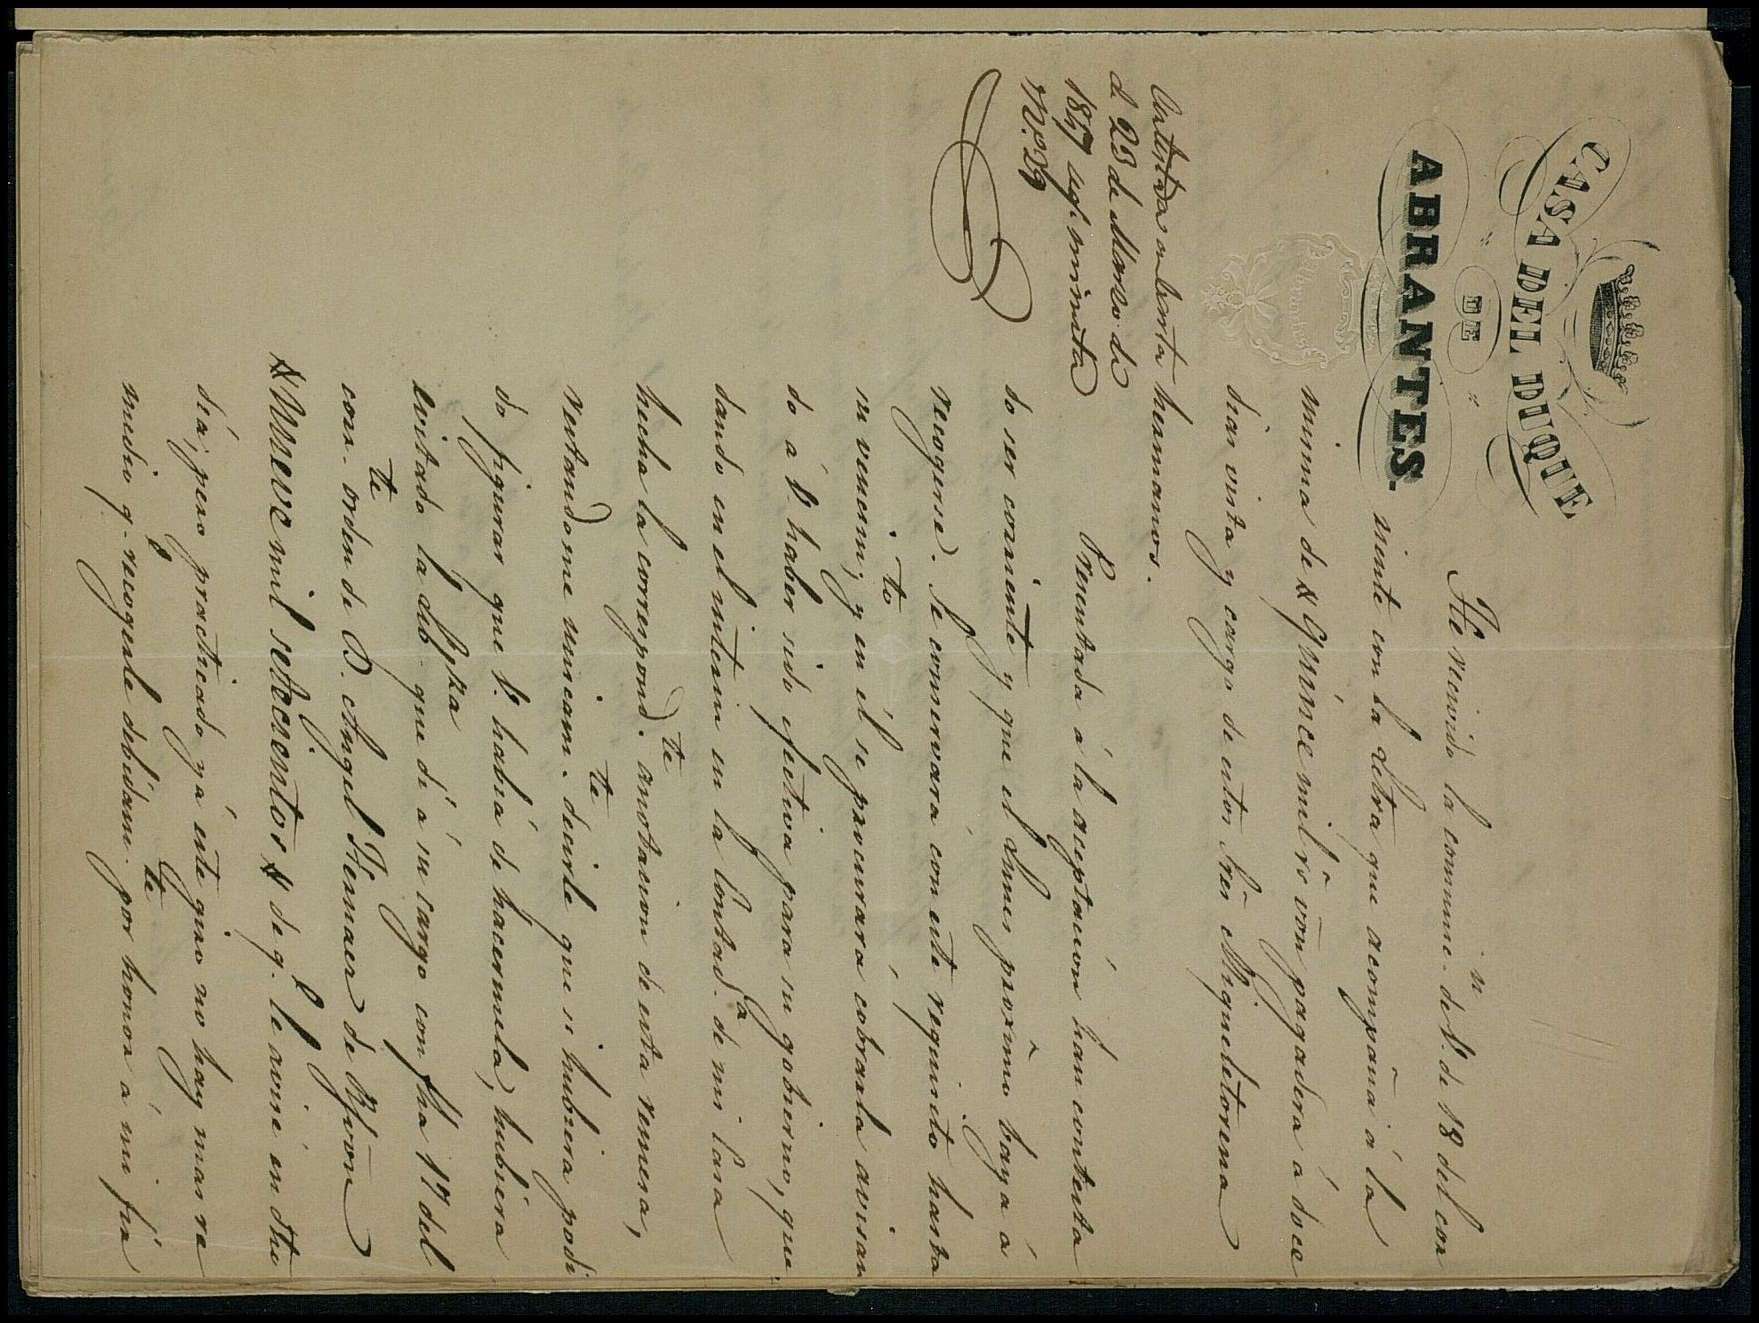 CASA DEL DUQUE
DE
ABRANTES.
Contestada en carta
d 23 de Marzo de
1847 segn. minuta
N.º 39
He recivido la comunic.n de V. de 18 del cor
riente con la Letra que acompaña á la
misma de # Quince mil rs. von pagadera á doce
dias vista y cargo de estos Sres. Miqueletorena
hermanos.
Presentada á la aceptacion han contesta
do ser corriente y que el Lunes proximo baya á
recogerse. Se conservará con este requisito hasta
su vencim.to, y en él se procurará cobrarla avisan
do á V. haber sido efectiva para su gobierno, que
dando en el interin en la Contad.a de mi Casa
hecha la correspond.te anotacion de esta remesa,
restandome unicam.te decirle que si hubiera podi
do figurar que V. habia de hacermela, hubiera
evitado la lib.za que dí á su cargo con fha 17 del
corr.te orden de D. Angel Hernaez de
# Nueve mil setecientos # de q.e le avisé en dho
dia; pero practicado yá este giro no hay mas re
medio q.e recogerle debidam.te por honor á mi fir